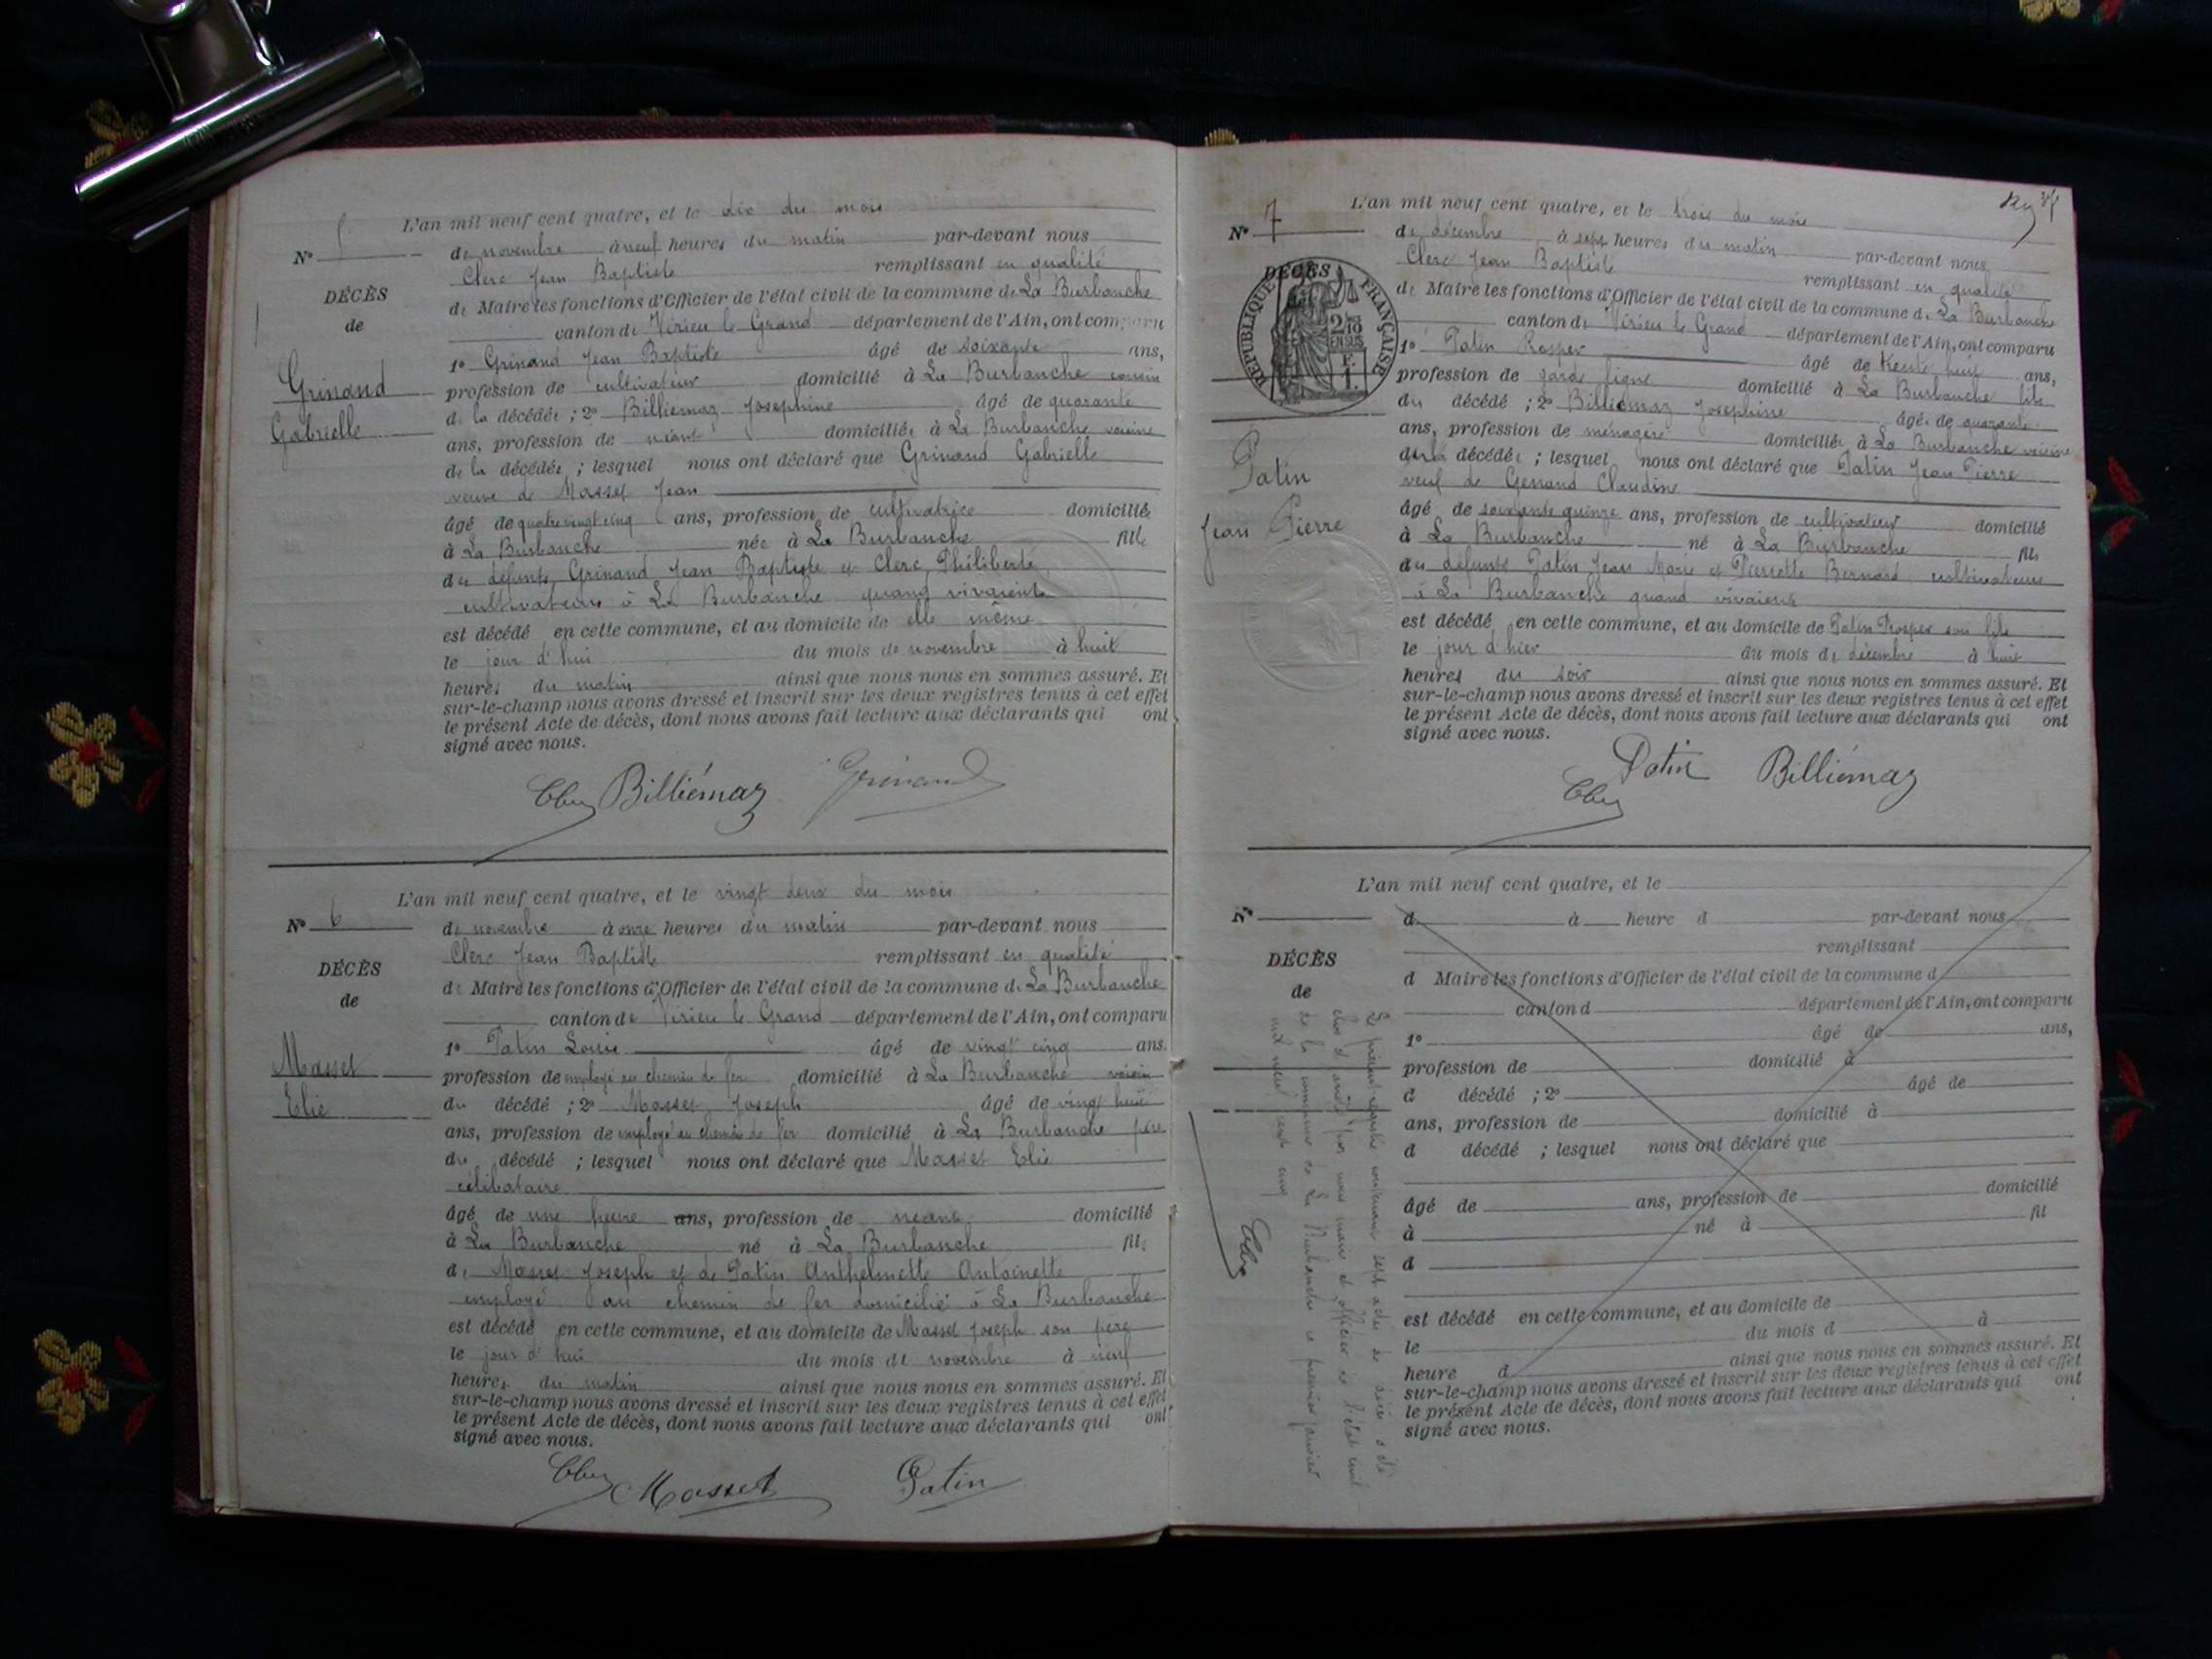 L'an mil neuf cent quatre, et le dix du mois
N°
de novembre à neuf heures du matin par-devant nous
Clerc Jean Baptiste remplissant en qualité
DÉCÈS
de Maire les fonctions d'Officier de l'état civil de la commune de La Burbanche
de
canton de Virieu le Grand département de l'Ain, ont comparu
1° Grinand Jean Baptiste âgé de soixante ans,
Grinand
profession de cultivateur domicilié à La Burbanche cousin
Gabrielle
de la décédée ; 2° Billiemaz Josephine âgé de quarante
ans, profession de néant domiciliée à La Burbanche voisine
de la décédée ; lesquel nous ont déclaré que Grinand Gabrielle
veuve de Masset Jean
âgé de quatre vingt cinq ans, profession de cultivatrice domiciliée
à La Burbanche née à La Burbanche fille
des défunts Grinand Jean Baptiste et Clerc Philiberte
cultivateurs à La Burbanche quand vivaient
est décédé en cette commune, et au domicile de elle même
le jour d'hui du mois de novembre à huit
heures du matin ainsi que nous nous en sommes assuré. Et
sur-le-champ nous avons dressé et inscrit sur les deux registres tenus à cet effet
le présent Acte de décès, dont nous avons fait lecture aux déclarants qui ont
signé avec nous.
Billiémaz Grinand
L'an mil neuf cent quatre, et le vingt deux du mois
N° 6
de novembre à onze heures du matin par-devant nous
Clerc Jean Baptiste remplissant en qualité
DÉCÈS
de Maire les fonctions d'Officier de l'état civil de la commune de La Burbanche
de
canton de Virieu le Grand département de l'Ain, ont comparu
1° Patin Louis âgé de vingt cinq ans.
Masset
profession de employé au chemin de fer domicilié à La Burbanche voisin
Elie
du décédé ; 2° Masset Joseph âgé de vingt huit
ans, profession de employé au chemin de fer domicilié à La Burbanche père
du décédé ; lesquel nous ont déclaré que Masset Elie
célibataire
âgé de une heure ans, profession de néant domicilié
à La Burbanche né à La Burbanche fils
de Masset Joseph et de Patin Anthelmette Antoinette
employé au chemin de fer domicilié à La Burbanche
est décédé en cette commune, et au domicile de Masset Joseph son père
le jour d'hui du mois de novembre à neuf
heures du matin ainsi que nous nous en sommes assuré. Et
sur-le-champ nous avons dressé et inscrit sur les deux registres tenus à cet effet
le présent Acte de décès, dont nous avons fait lecture aux déclarants qui ont
signé avec nous.
Masset Patin
L'an mil neuf cent quatre, et le trois du mois
N° 7
de décembre à sept heures du matin par-devant nous
Clerc Jean Baptiste remplissant en qualité
DÉCÈS
RÉPUBLIQUE FRANÇAISE
2/10 EN SUS
F. 1.
de Maire les fonctions d'Officier de l'état civil de la commune de La Burbanche
canton de Virieu le Grand département de l'Ain, ont comparu
1° Patin Prosper âgé de trente huit ans,
profession de garde ligne domicilié à La Burbanche fils
du décédé ; 2° Billiemaz Josephine âgée de quarante
ans, profession de ménagère domiciliée à La Burbanche voisine
Patin
décédé ; lesquel nous ont déclaré que Patin Jean Pierre
veuf de Genand Claudine
Jean Pierre
âgé de soixante quinze ans, profession de cultivateur domicilié
à La Burbanche né à La Burbanche fils
des défunts Patin Jean Marie et Pierrette Bernard cultivateurs
à La Burbanche quand vivaient
est décédé en cette commune, et au domicile de Patin Prosper son fils
le jour d'hier du mois de décembre à huit
heures du soir ainsi que nous nous en sommes assuré. Et
sur-le-champ nous avons dressé et inscrit sur les deux registres tenus à cet effet
le présent Acte de décès, dont nous avons fait lecture aux déclarants qui ont
signé avec nous.
Patin Billiémaz
L'an mil neuf cent quatre, et le
N°
d à heure d par-devant nous
remplissant
DÉCÈS
d Maire les fonctions d'Officier de l'état civil de la commune d
de
canton d département de l'Ain, ont comparu
1° âgé de ans,
profession de domicilié à
d décédé ; 2° âgé de
ans, profession de domicilié à
d décédé ; lesquel nous ont déclaré que
âgé de ans, profession de domicilié
à né à fil
d
est décédé en cette commune, et au domicile de
le du mois d à
heure d ainsi que nous nous en sommes assuré. Et
sur-le-champ nous avons dressé et inscrit sur les deux registres tenus à cet effet
le présent Acte de décès, dont nous avons fait lecture aux déclarants qui ont
signé avec nous.
Le présent registre contenant sept actes de décès a été
clos et arrêté par nous maire et officier de l'état civil
de la commune de La Burbanche ce premier janvier
mil neuf cent cinq